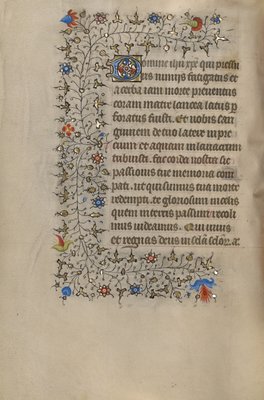 Domine ihu xpe qui pressu
ris nimijs fatigatus et
acerba iam morte preuentus
coram matre lancea latus p
foratus fuisti. Et nobis san
guinem de tuo latere in pre
cium et aquam in lauacrum
tribuisti. fac corda nostra sic
passionis tue memoria com
pati. ut qui sumus tua morte
redempti. te gloriosum in celis
quem in terris passum recoli
mus uideamus. Qui uiuis
et regnas deus in secula seclor. a